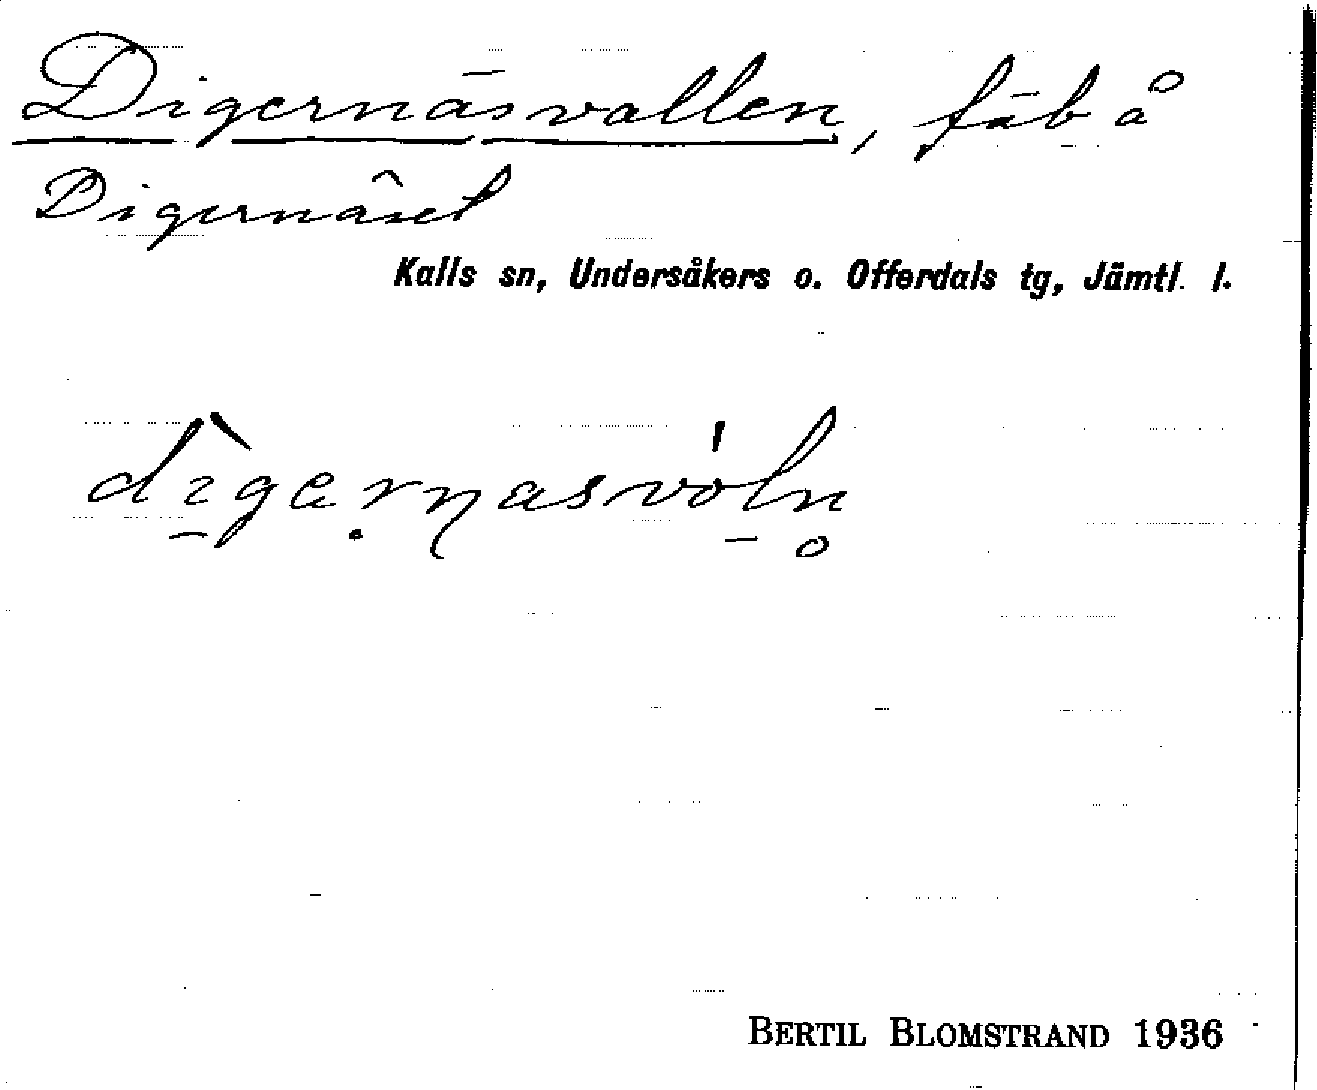 Digernäsvallen, fäb å
Digernäset
Kalls sn, Undersåkers o. Offerdals tg, Jämtl. l.
dìgeṛŋasvóln̥
BERTIL BLOMSTRAND 1936